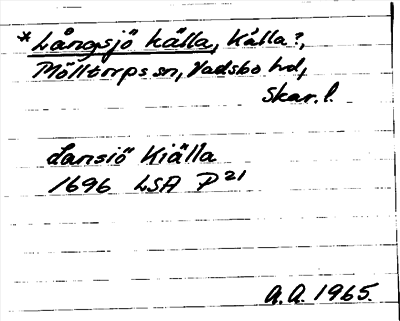 *Långsjö källa, Källa?,
Mölltorps sn, Vadsbo hd,
Skar. l.
Lansiö Kiälla
1696 LSA P²¹
A. A. 1965.